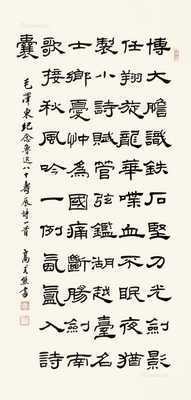 博大膽識鐵石堅刀光劍影
任翔旋龍華喋血不眠夜猶
製小詩賦管弦鑑湖越臺名
士鄉憂忡為國痛斷腸劍南
歌接秋風吟一例氤氳入詩
囊
毛澤東紀念魯迅八十壽辰詩一首 高式熊書